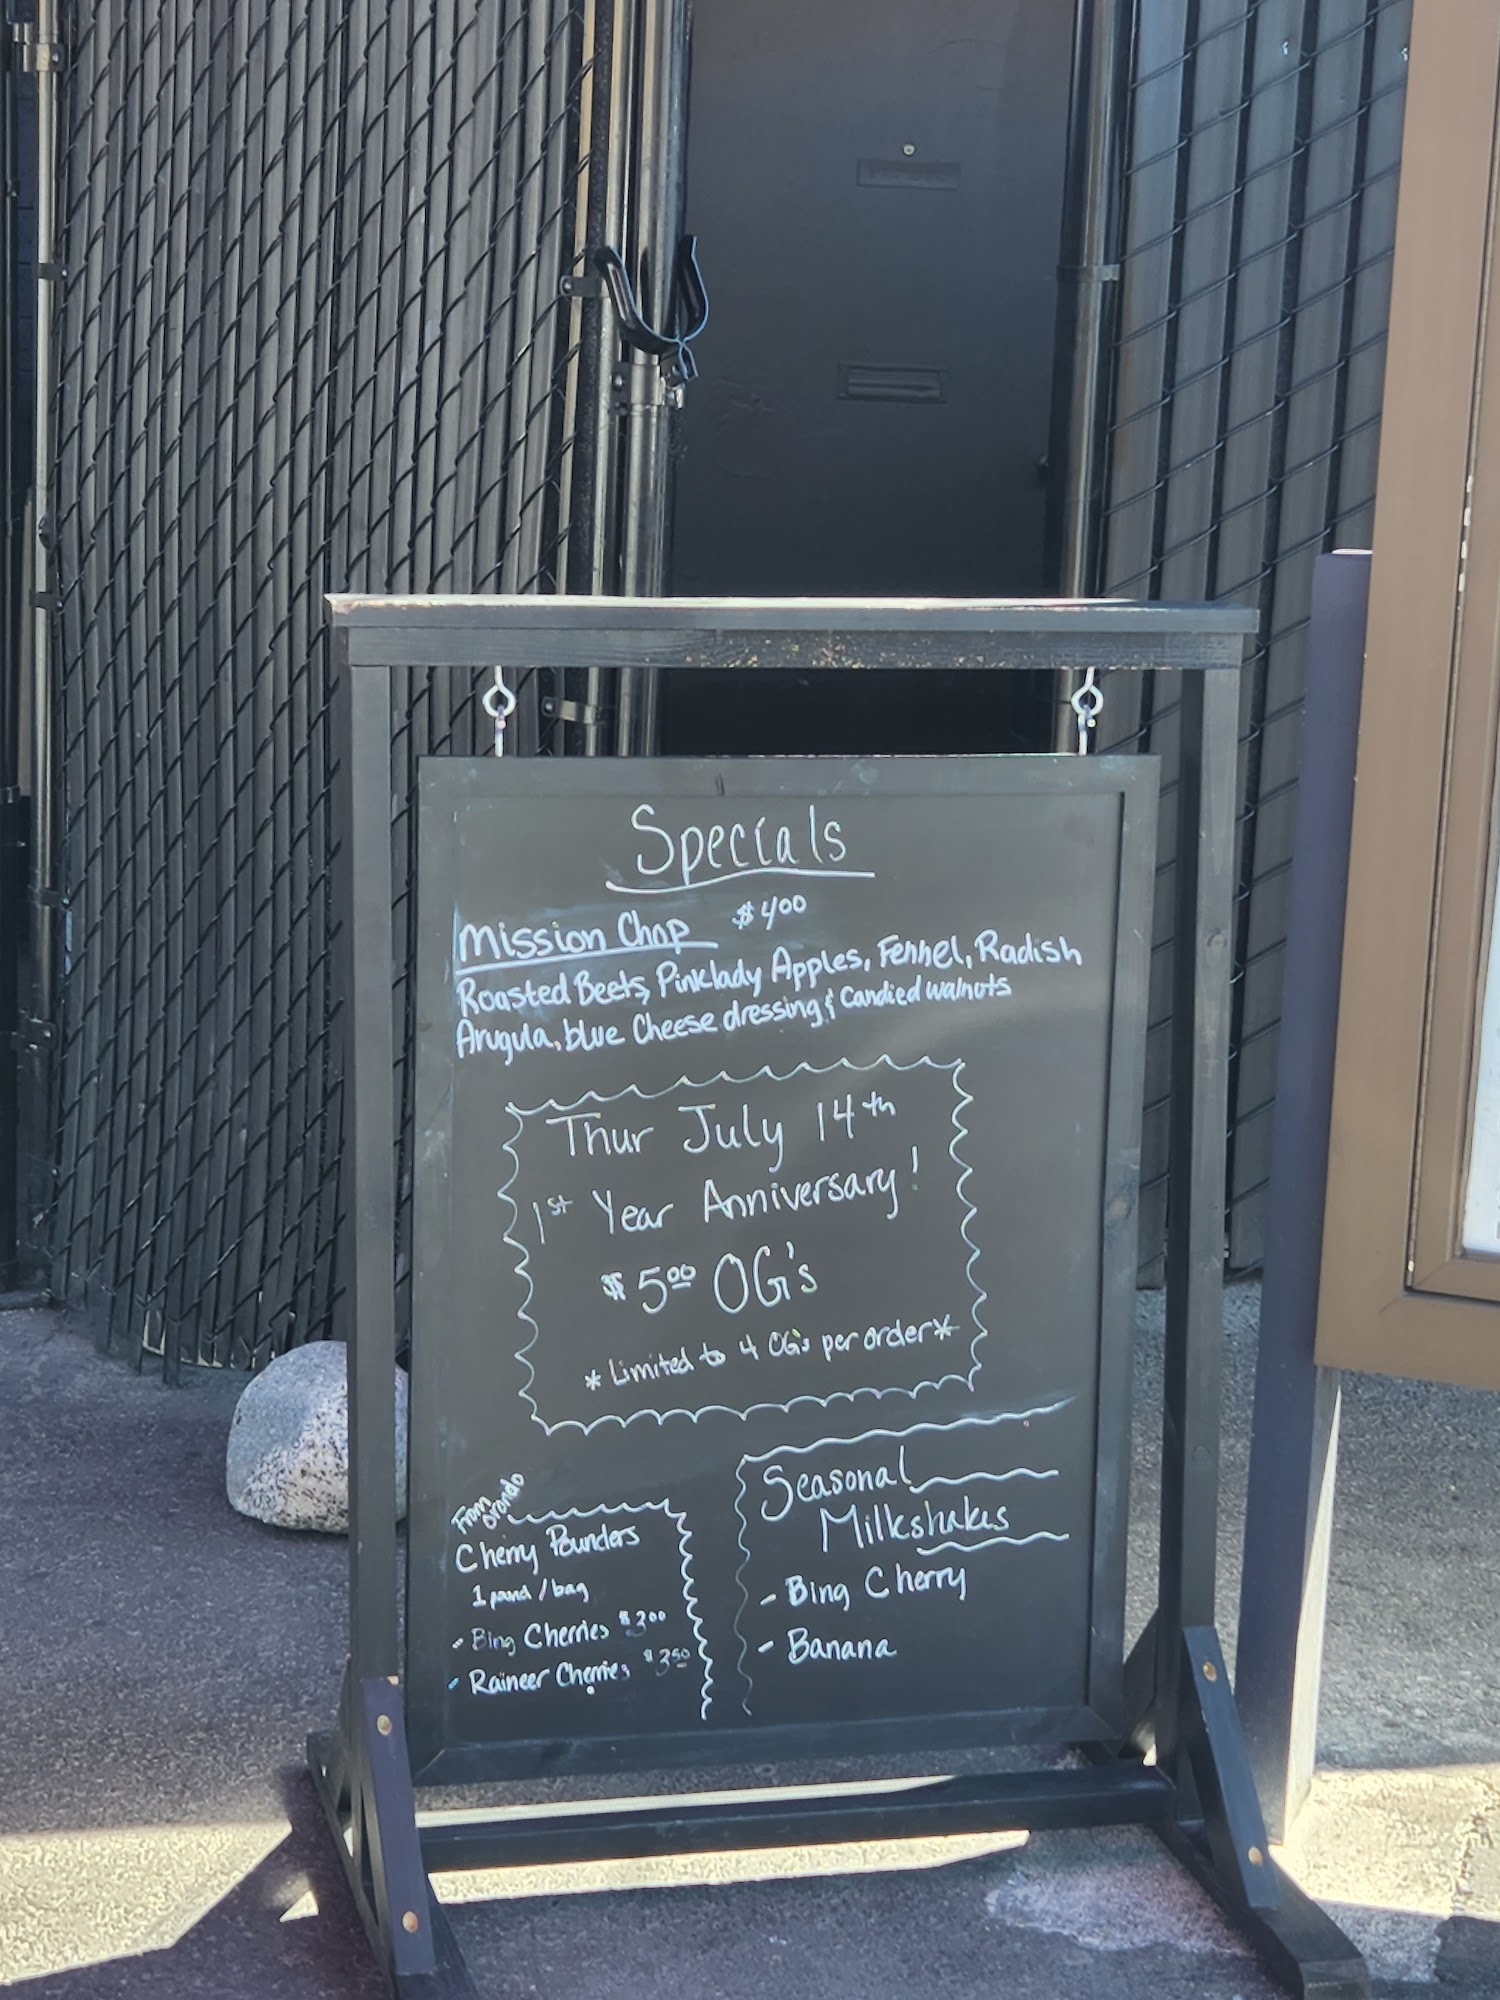 Specials
Mission Chop $4.00
Roasted Beets, Pinklady Apples, Fennel, Radish
Arugula, blue Cheese dressing & Candied walnuts
Thur July 14th
1st Year Anniversary!
$5.00 OG's
*Limited to 4 OG's per order*
From
Orondo
Cherry Pounders
1 pound/bag
- Bing Cherries $3.00
- Raineer Cherries $3.50
Seasonal
Milkshakes
- Bing Cherry
- Banana